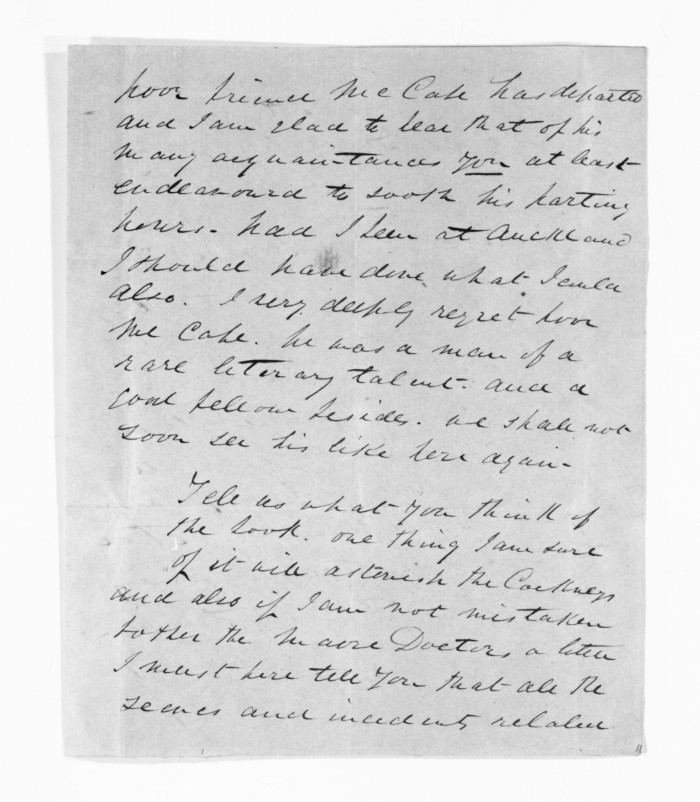 poor friend Mc Cabe has departed
and I am glad to hear that of his
many acquaintances You at least
endeavourd to sooth his parting
hours - had I been at Auckland
I should have done what I could
also. I very deeply regret poor
Mc Cabe. he was a man of a
rare literary talent. and a
good fellow besides. we shall not
soon see his like here again -
Tell us what you think of
the book. one thing I am sure
of it will astonish the Cockneys
and also if I am not mistaken
bother the Maori Doctors a little
I must here tell you that all the
scenes and incidents related